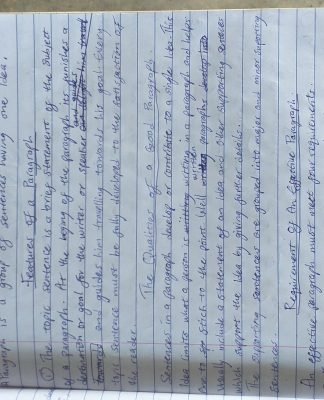 A Paragraph is a group of sentences having one idea.
Features of a Paragraph
① The topic sentence is a brief statement of the subject
of a paragraph. At the beging of the paragraph its punishes a
and guides
destination or goal for the writer or speaker and
towards and guides him travelling towards his goal. Every
topic sentence must be fully developed to the satisfaction of
the reader.
The Qualities of a Good Paragraph.
Sentences in a paragraph develop or contribute to a single idea. This
idea limits what a person is writing in a paragraph and helps
written
one to stich to the point. Well paragraphs
usually include a statement of an idea and other supporting sentences
which support the idea by giving further details.
The supporting sentences are grouped into major and minor supporting
sentences.
Requirement of An Effective Paragraph
An effective paragraph must meet four requirements.